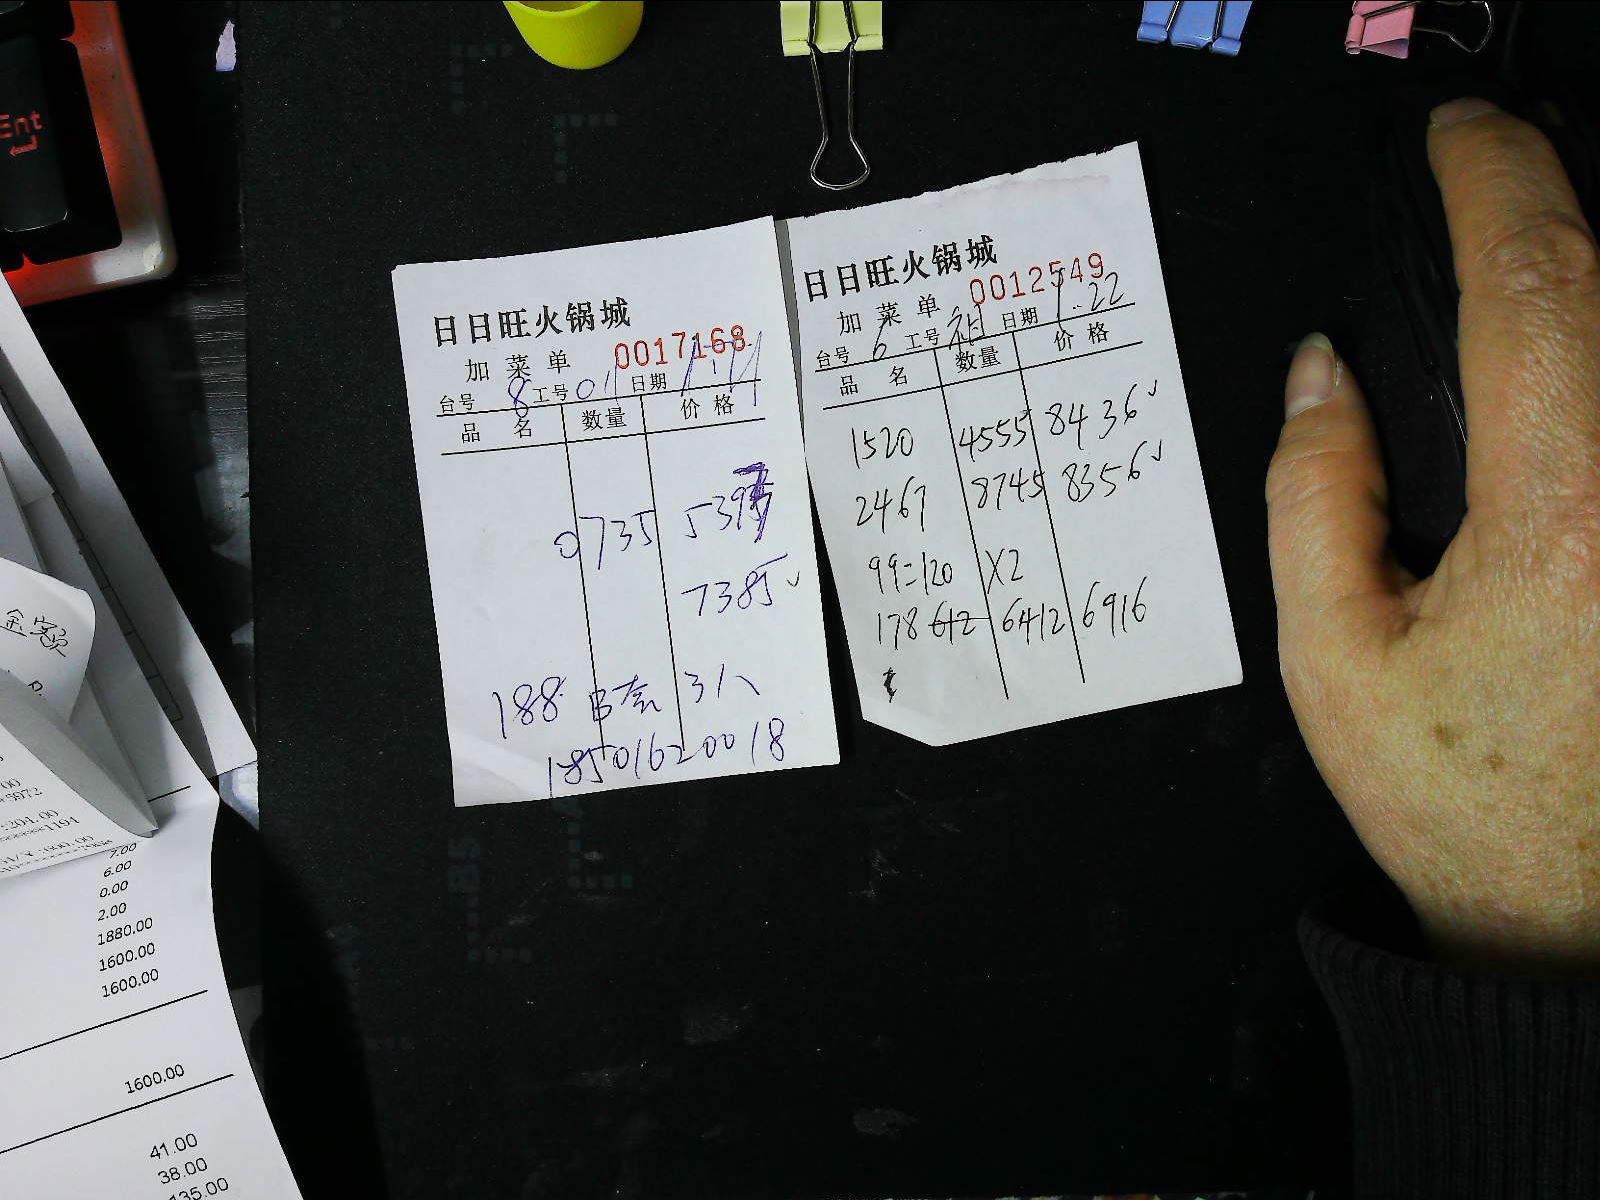 Ent
日日旺火锅城
0017168
加菜单
台号 8 工号 011 日期
品名 数量 价格
0735 539
7385 ✓
188 B套 3人
18501620018
日日旺火锅城
0012549
加菜单
台号 6 工号 日期 1.22
品名 数量 价格
1520 4555 8436 ✓
2467 8745 8356 ✓
99=120 X2
178 612 6412 6916
5972
:204.00
1194
7.00
6.00
0.00
2.00
1880.00
1600.00
1600.00
1600.00
41.00
38.00
135.00